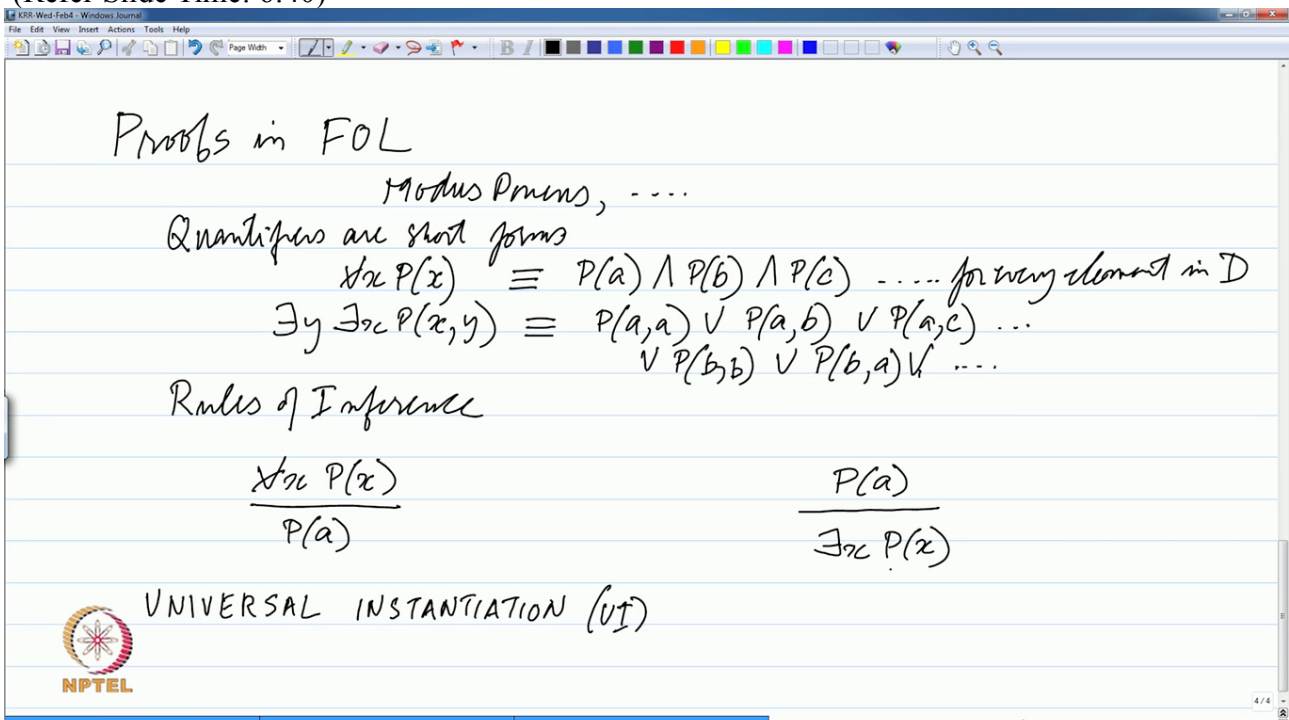 (Refer Slide Time: 6:40)
KRR-Wed-Feb4 - Windows Journal
File Edit View Insert Actions Tools Help
Page Width
Proofs in FOL
Modus Ponens, ....
Quantifiers are short forms
∀x P(x) ≡ P(a) ∧ P(b) ∧ P(c) ..... for every element in D
∃y ∃x P(x,y) ≡ P(a,a) ∨ P(a,b) ∨ P(a,c) ...
∨ P(b,b) ∨ P(b,a) ∨ ....
Rules of Inference
∀x P(x) P(a)
P(a) ∃x P(x)
UNIVERSAL INSTANTIATION (UI)
NPTEL
4/4